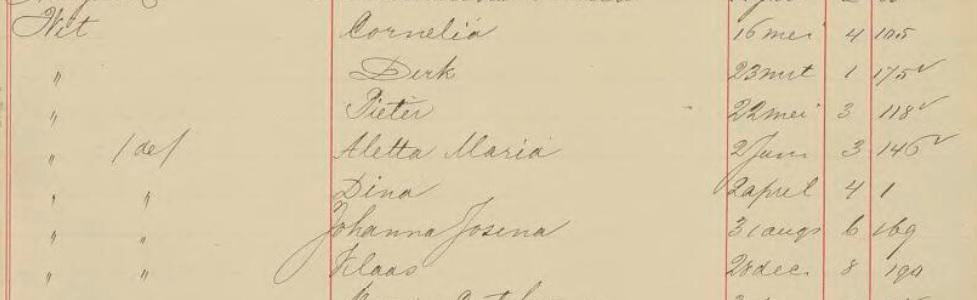 Wit Cornelia 16 mei 4 105
" Dirk 23 mrt 1 175
" Pieter 22 mei 3 118
" (de) Aletta Maria 2 juni 3 146
" " Dina 2 april 4 1
" " Johanna Josina 31 augs 6 169
" " Klaas 28 dec. 8 190